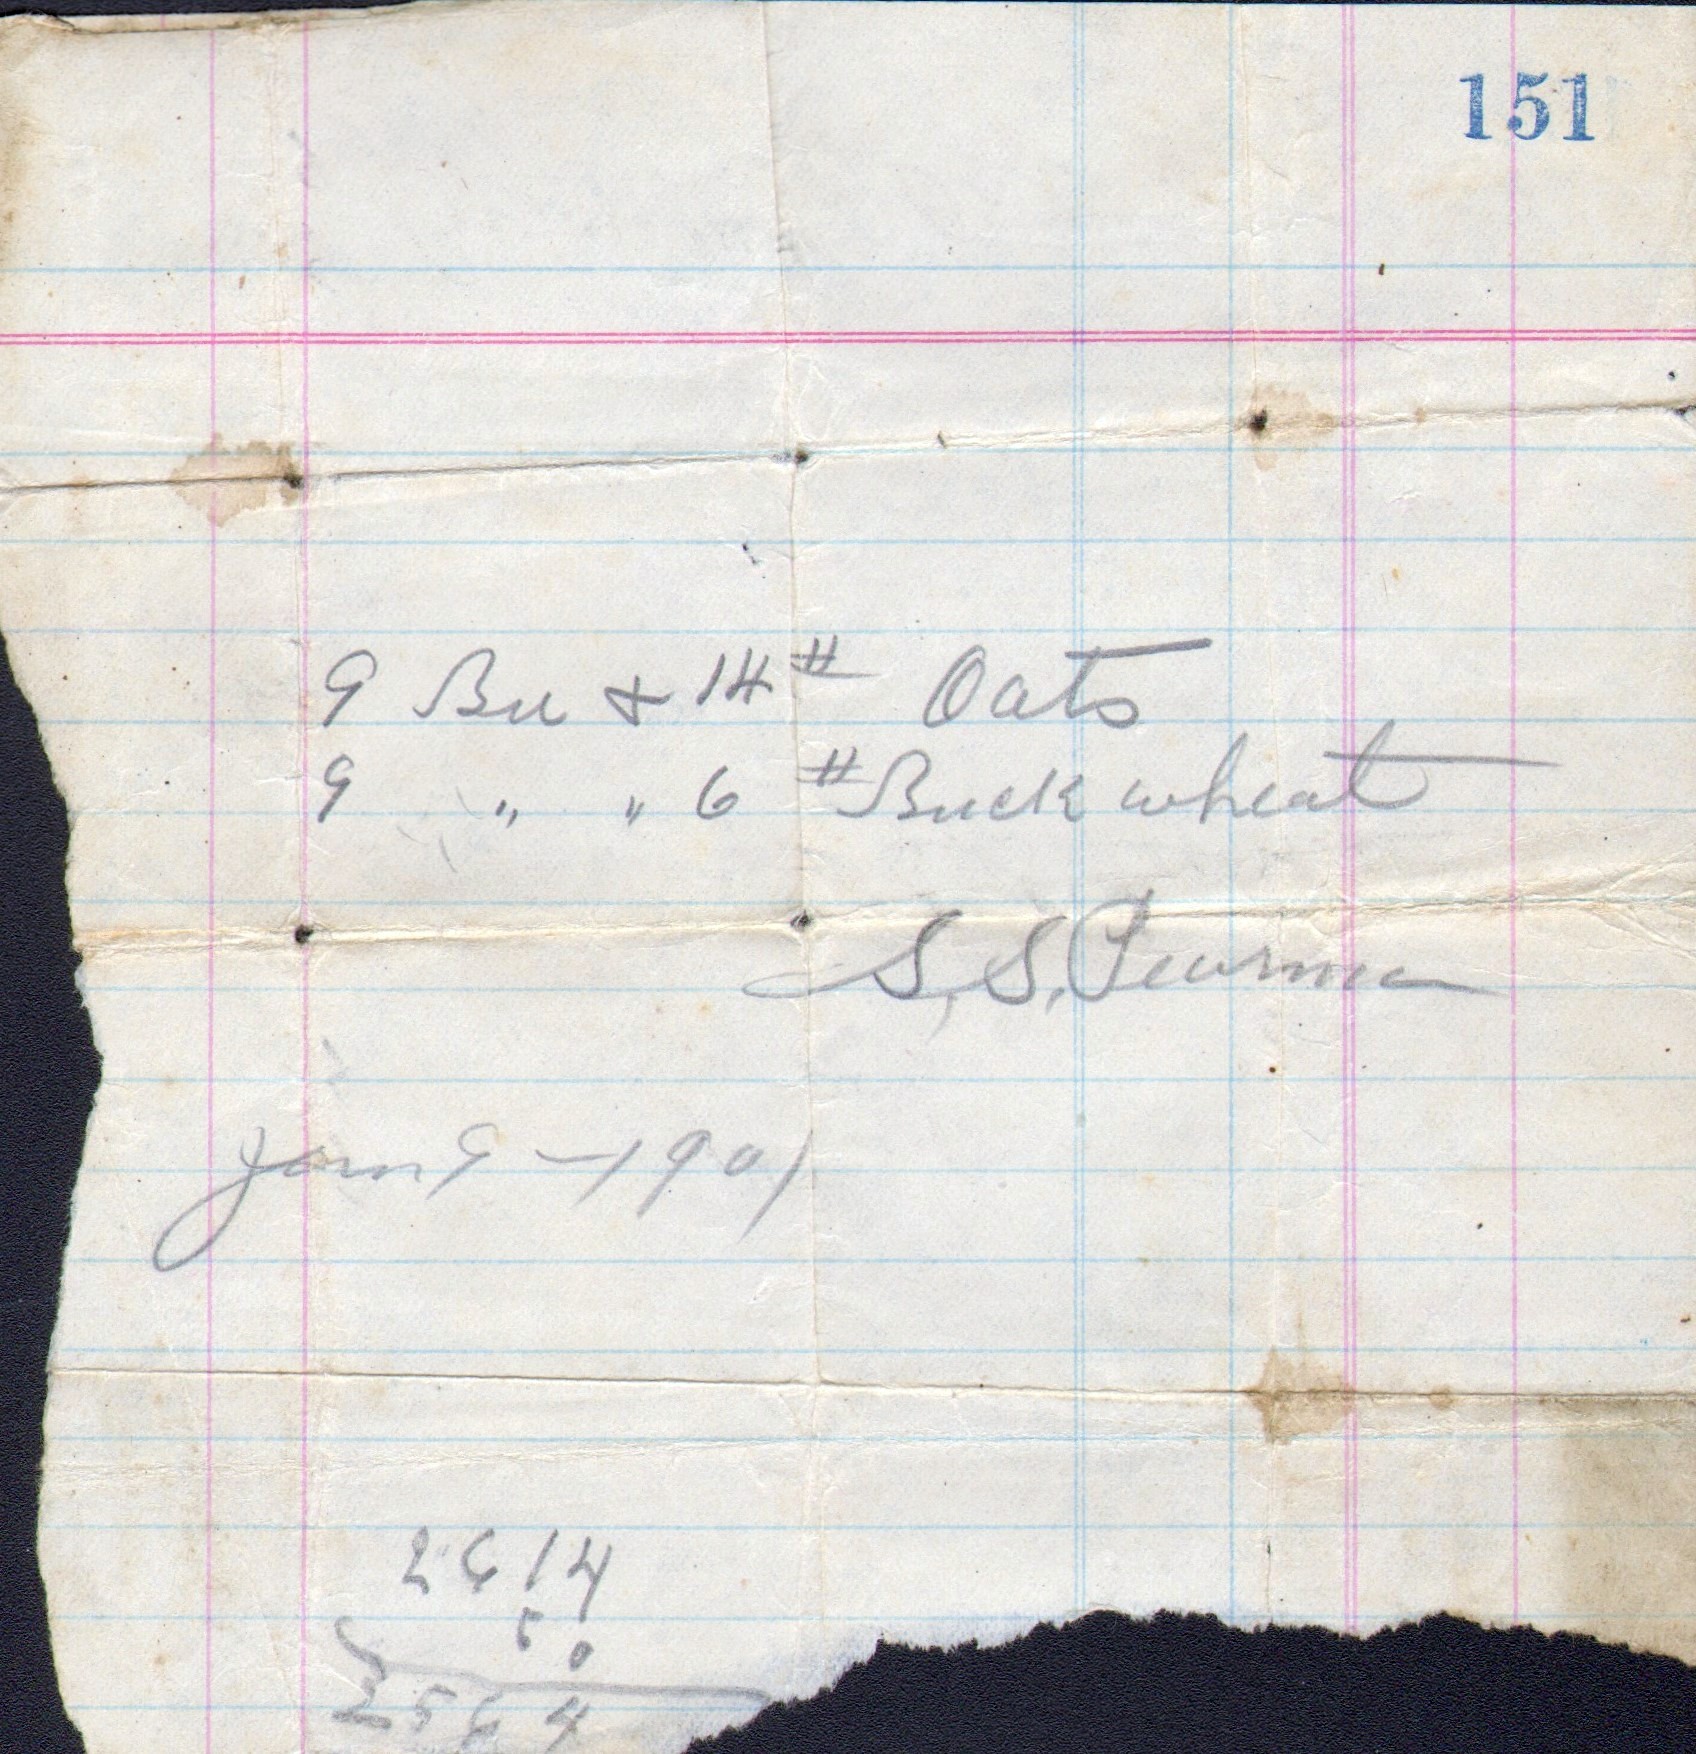 151
9 Bu & 14 # Oats
9 " " 6 # Buck wheat
S. S. Pearman
Jan 9 – 1901
2614
50
2564